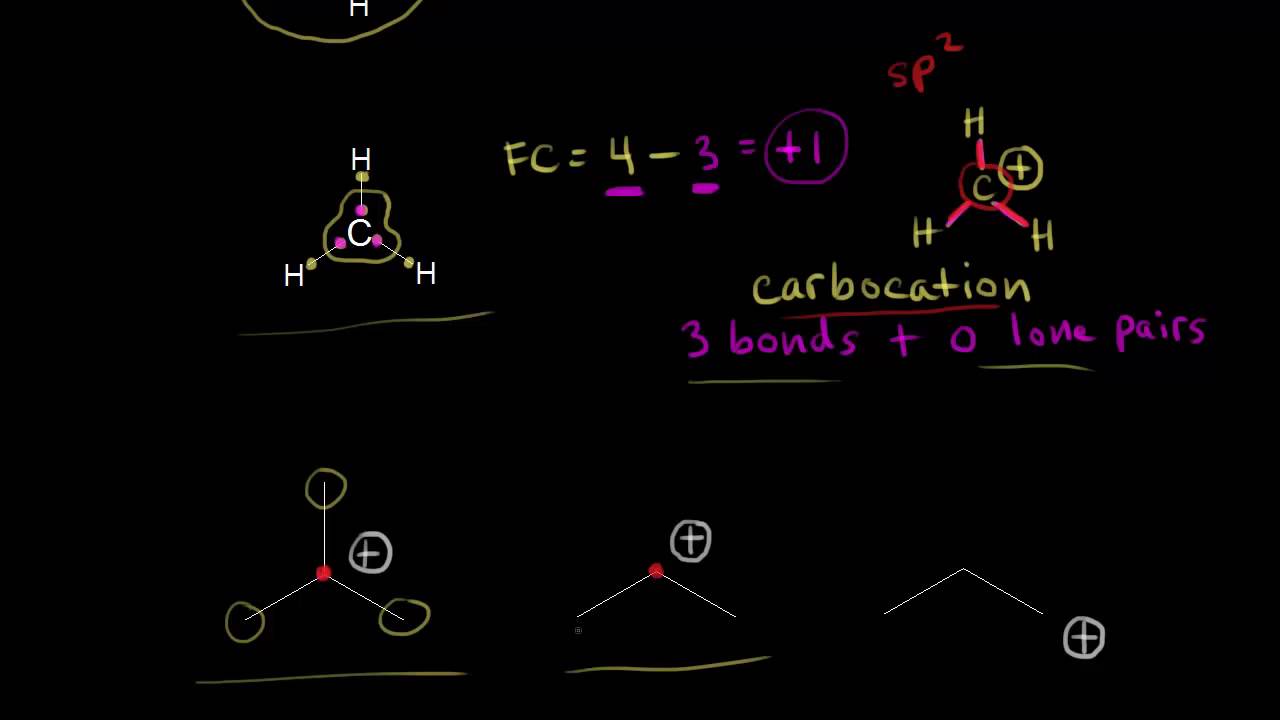 H
sp²
H
FC = 4 - 3 = +1
H
C +
C
H H
H H
carbocation
3 bonds + 0 lone pairs
+ + +